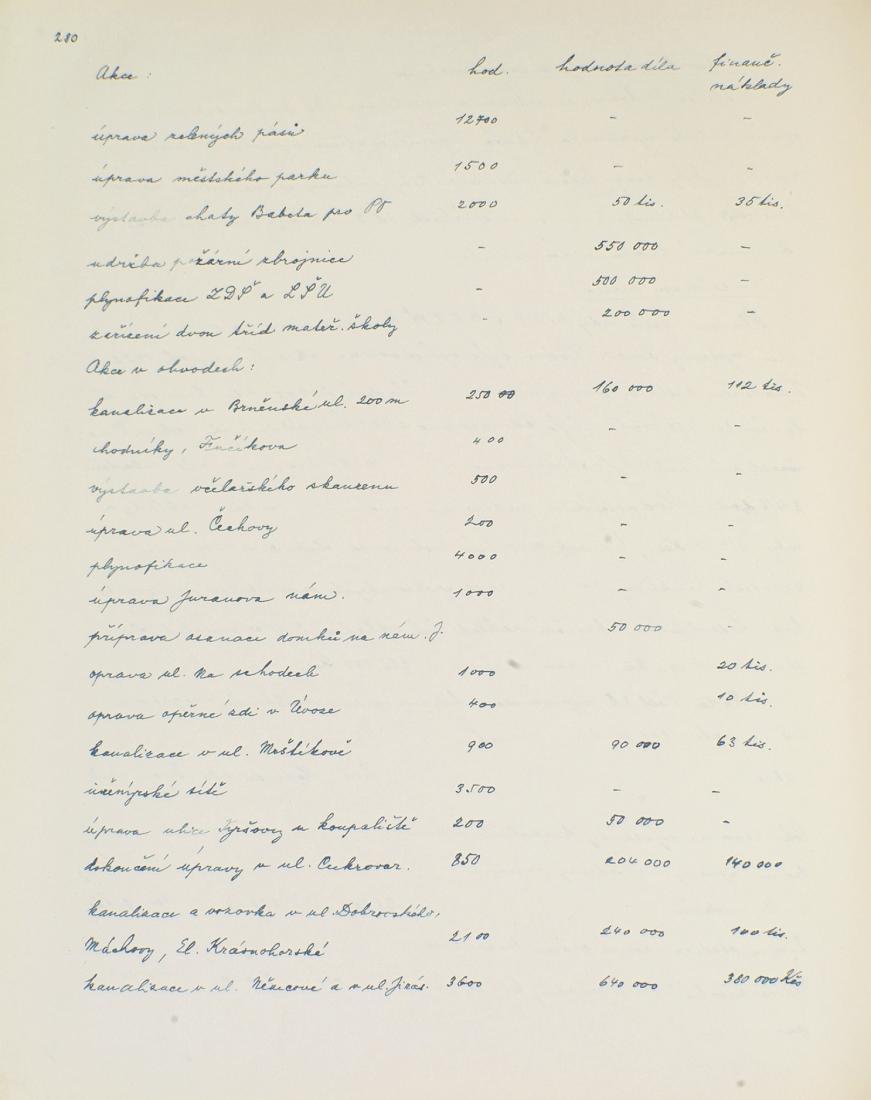 280
Akce : hod. hodnota díla finanč.
náklady
úprava zelených pásů 12700 – –
úprava městského parku 1500 – –
výstavba chaty Babeta pro PO 2000 50 tis. 35 tis.
udržba požární zbrojnice – 550 000 –
plynofikace ZDŠ a LŠU – 500 000 –
zařízení dvou tříd mateř. školy – 200 000 –
Akce v obvodech :
kanalizace v Brněnské ul. 200 m 250 00 160 000 112 tis.
chodníky, Fučíkova 400 – –
výstavba včelařského skanzenu 500 – –
úprava ul. Čechovy 200 – –
plynofikace 4000 – –
úprava Juranova nám. 1000 – –
příprava asanaci domků na nám. J. 50 000 –
oprava ul. Na schodech 1000 20 tis.
oprava opěrné zdi v Úvoze 400 10 tis.
kanalizace v ul. Mrštíkově 900 90 000 63 tis.
inženýrské sítě 3500 – –
úprava ulice Tyršovy u koupaliště 200 50 000 –
dokončení úpravy v ul. Cukrovar. 850 204 000 140 000
kanalizace a vozovka v ul. Dobrovského,
Máchovy, El. Krásnohorské 2100 240 000 100 tis.
kanalizace v ul. Němcové a v ul. Jirás. 3600 640 000 380 000 Kčs